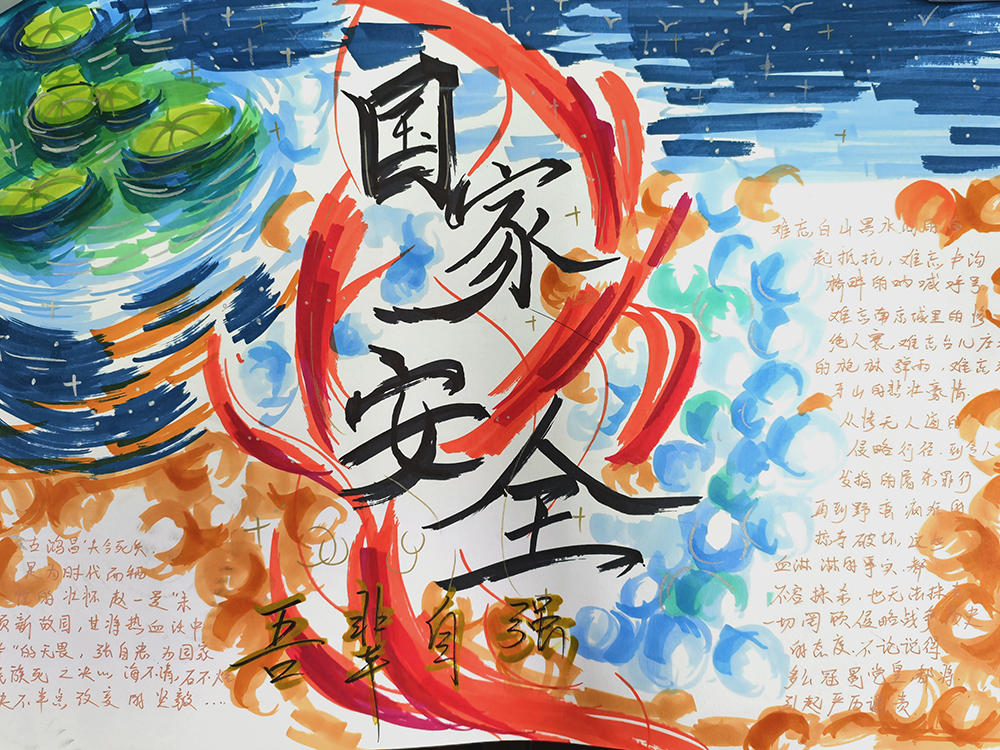 国
家
安
全
吾辈自强
难忘白山黑水
起抵抗，难忘卢沟
桥畔的呐喊呼
难忘南京城里的惨
绝人寰，难忘台儿庄
的炮林弹雨，难忘
牙山的悲壮豪情
从惨无人道的
侵略行径，到令人
发指的屠杀罪行
再到野蛮疯狂的
掠夺破坏，这
血淋淋的事实，都
不容抹杀，也无法抹
一切罔顾侵略战争
的态度，不论说得
多么冠冕堂皇，都将
引起严厉谴责
大众死矣
是为时代而牺
的壮怀，赵一曼“未
新故国，甘将热血沃中
”的无畏，张自忠“为国家
民族死之决心，海不清，石不烂
决不半点改变”的坚毅....